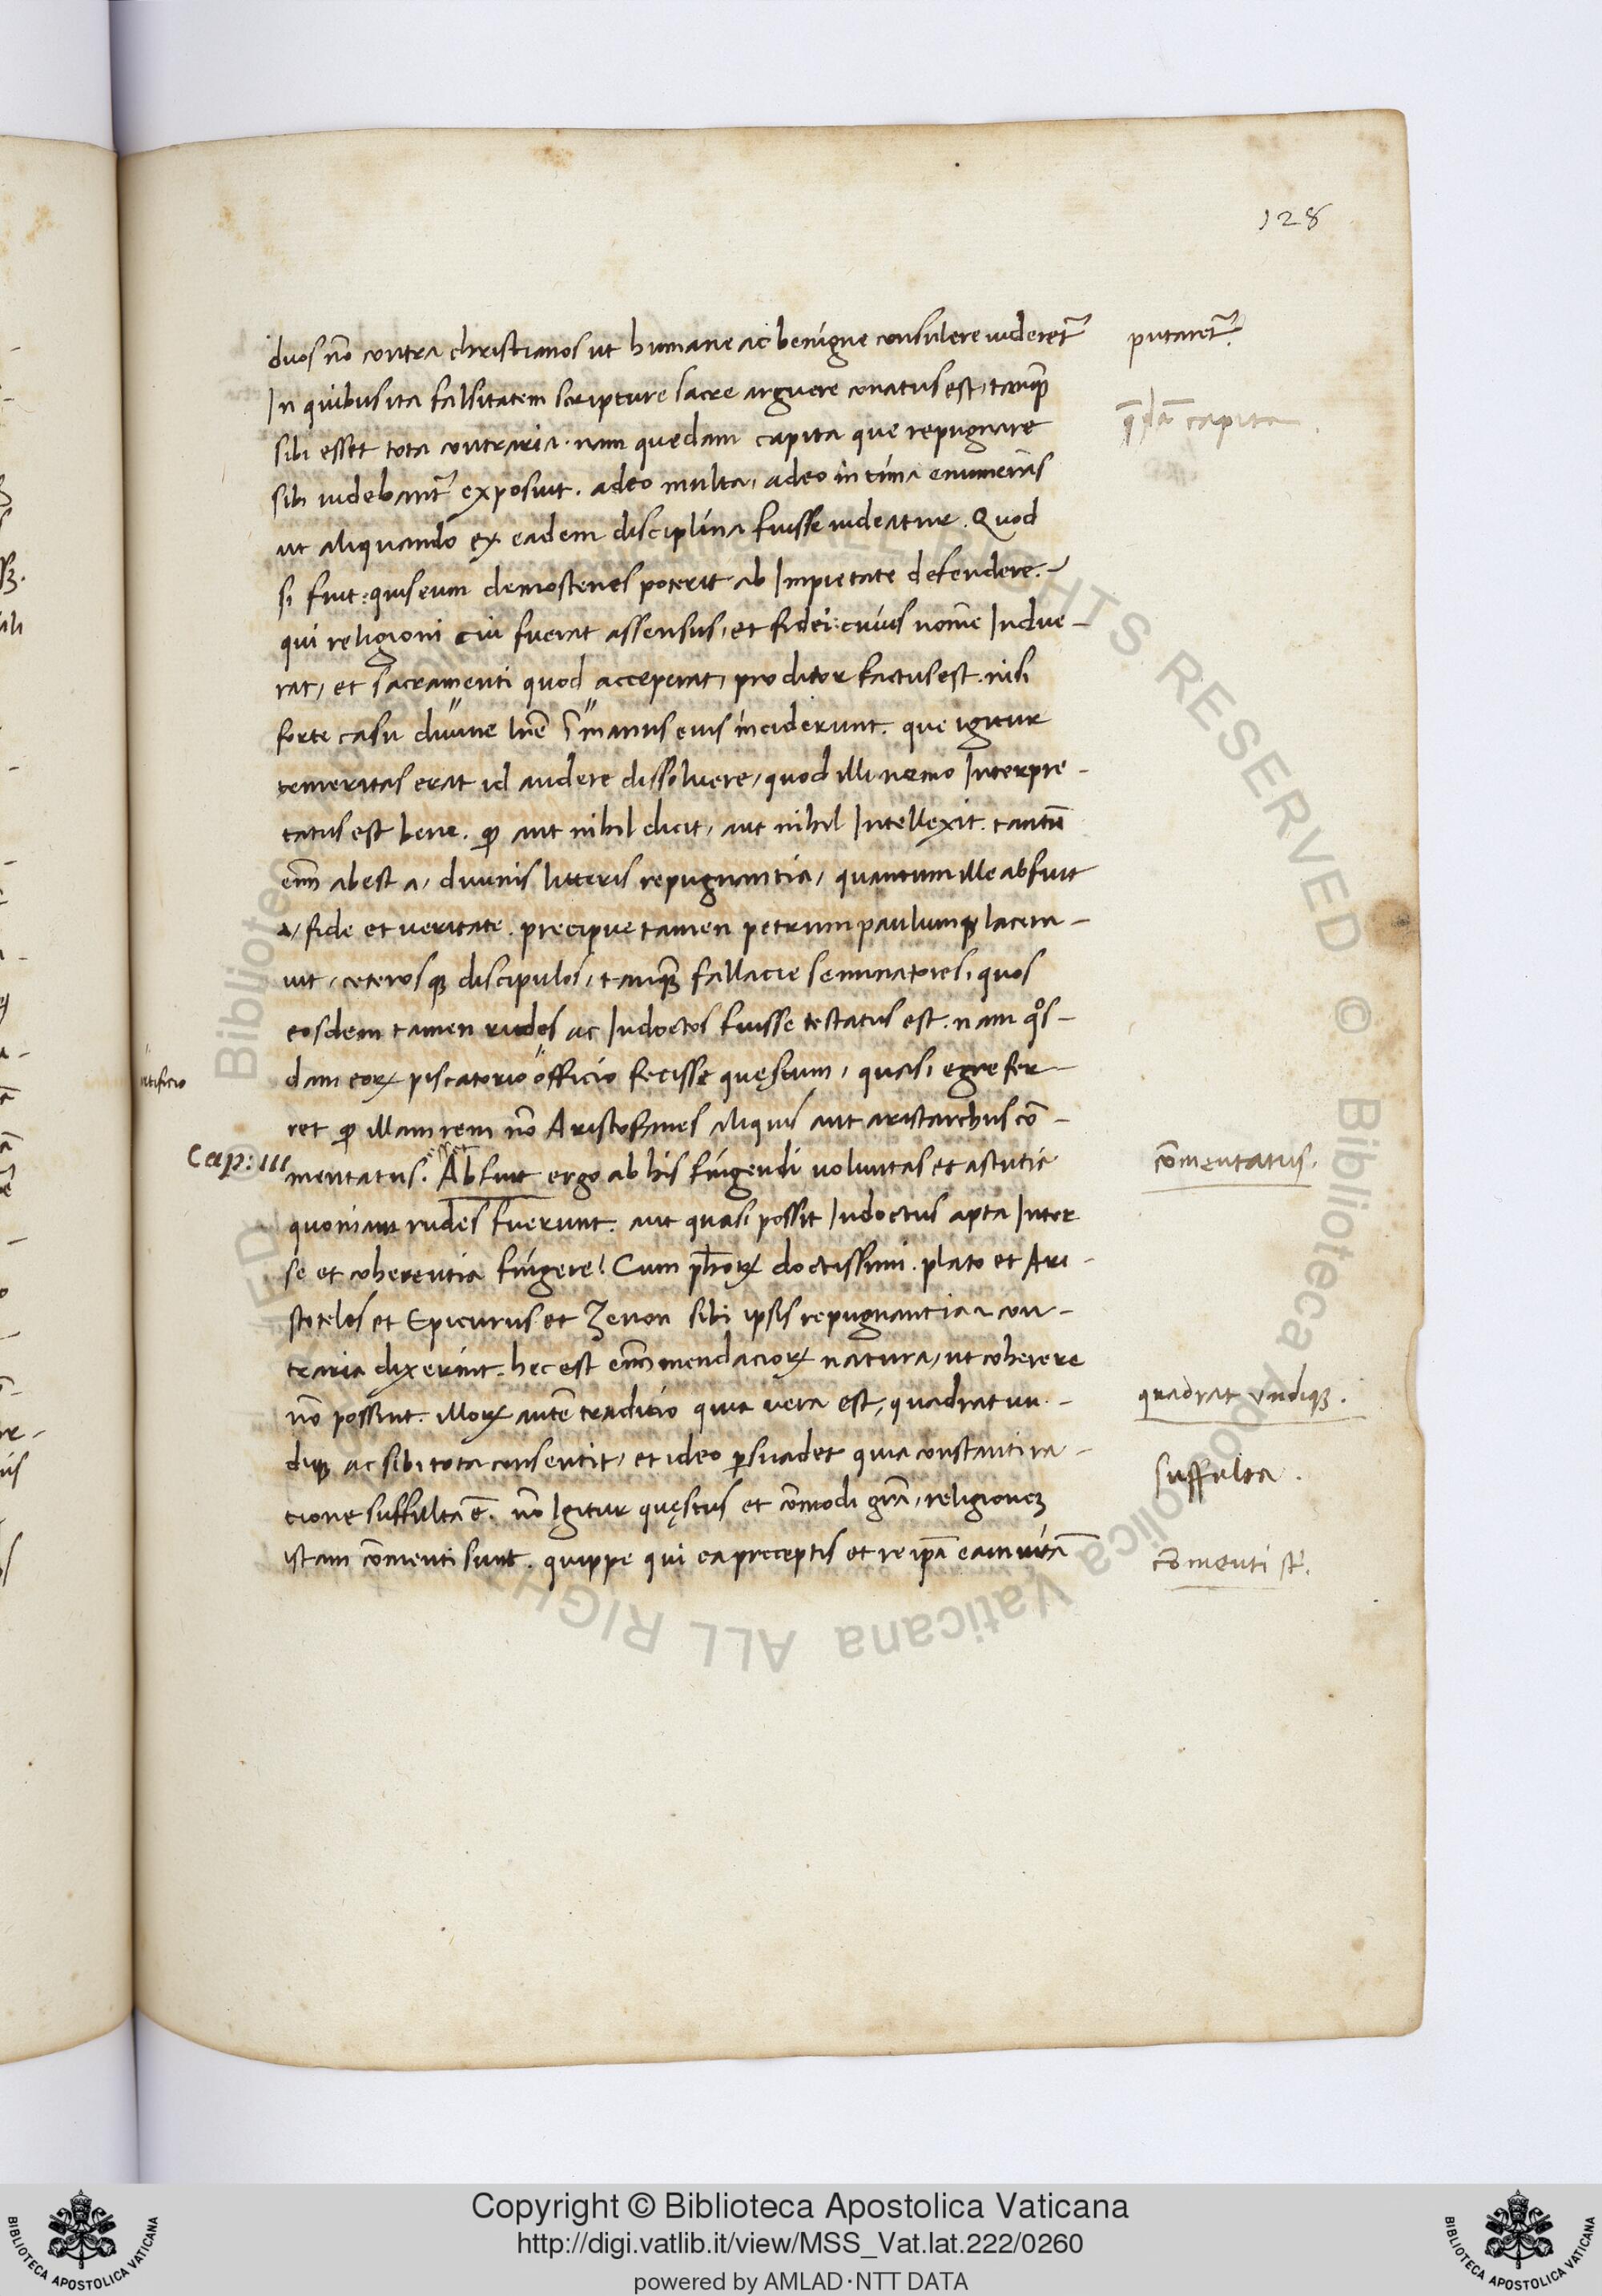 128
duos nō contra christianos ut humane ac benigne consulere uideret᷑
putaret᷑.
In quibus ita falsitatem scripture sacre arguere conatus est, tanq̃
sibi esset tota contraria. nam quedam capita que repugnare
q̄dā capita
sibi uidebant᷑ exposuit. adeo multa, adeo intima enumerās
ut aliquando ex eadem disciplina fuisse uideatur. Quod
si fuit: quis eum demostenes poterit ab Impietate defendere.
qui religioni cui fuerat assensus, et fidei: cuius nomē Indue-
rat, et sacramenti quod acceperat, proditor factus est. nisi
forte casu diuine lr̄e ī manus eius inciderunt. que igitur
temeritas erat id audere dissoluere, quod illi nemo Interpre-
tatus est bene. ꝙ aut nihil dicit, aut nihil Intellexit. tantū
eñ abest a, diuinis litteris repugnantia, quantum ille abfuit
a, fide et ueritate. precipue tamen petrum paulumqꝫ lacera-
uit, ceterosqꝫ discipulos, tanq̃ fallacie seminatores, quos
eosdem tamen rudes ac Indoctos fuisse testatus est. nam qͦs-
dam eoꝝ piscatorio officio fecisse quęstum, quasi egre fer-
ret ꝙ illam rem nō Aristofanes aliquis aut aristarchus cō-
Cap: III
esset
mentatus. Abfuit ergo ab his fingendi uoluntas et astutie
cōmentatus.
quoniam rudes fuerunt. aut quasi possit Indoctus apta Inter
se et coherentia fingere? Cum ph̄oꝝ doctissimi. plato et Ari-
stoteles et Epicurus et Zenon sibi ipsis repugnantia et con-
traria dixerint. hec est eñ mendacioꝝ natura, ut coherere
nō possint. illoꝝ autē traditio quia uera est, quadrat un-
quadrat undiqꝫ.
diqꝫ ac sibi tota consentit, et ideo ꝑsuadet quia constanti ra-
suffulta.
tione suffulta ē. nō Igitur quęstus et cōmodi gr̄a, religionem
istam cōmenti sunt. quippe qui ea preceptis et re ipā eam uitā
cōmenti st̄.
Copyright © Biblioteca Apostolica Vaticana
http://digi.vatlib.it/view/MSS_Vat.lat.222/0260
powered by AMLAD·NTT DATA
BIBLIOTECA APOSTOLICA VATICANA
BIBLIOTECA APOSTOLICA VATICANA